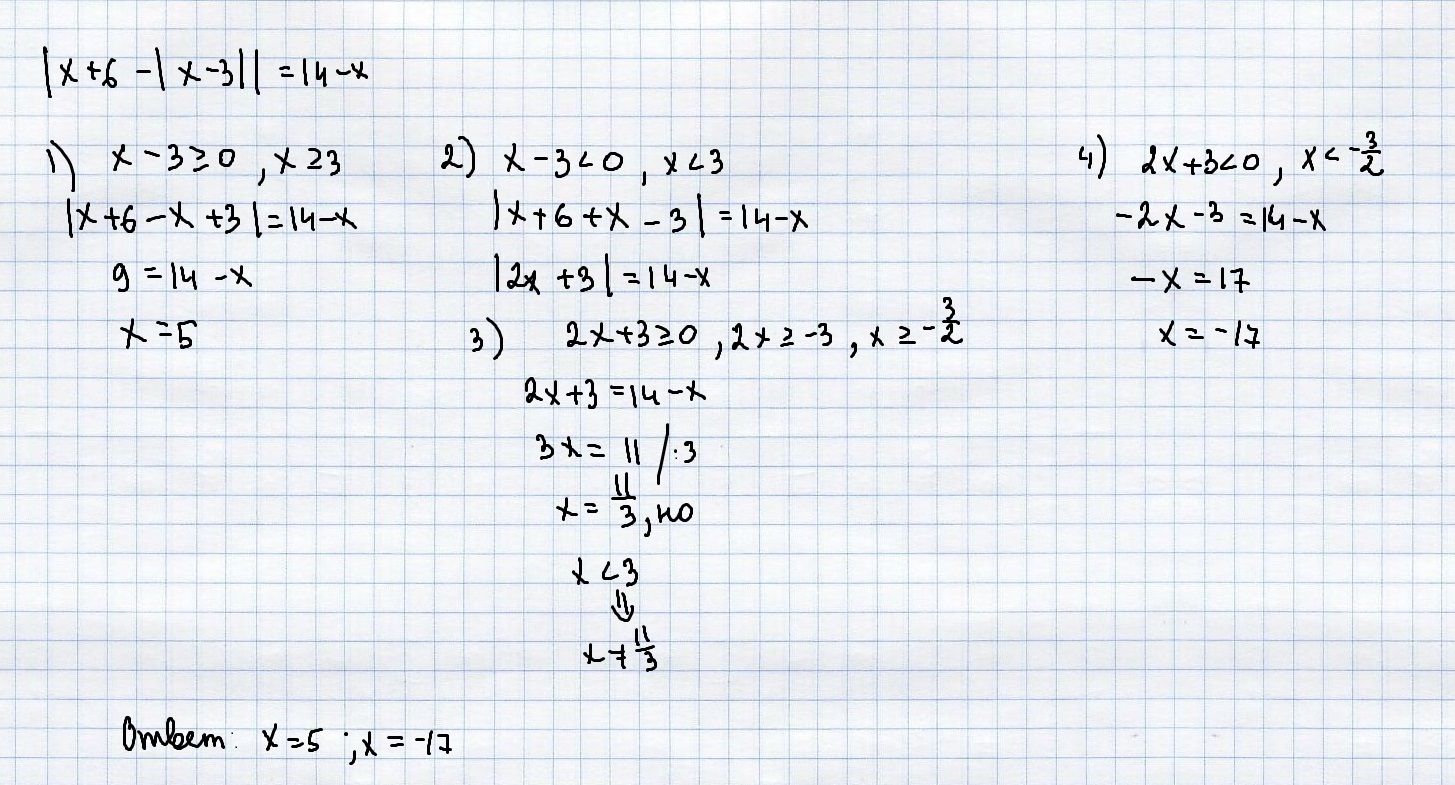 |x+6-|x-3||=14-x
1) x-3≥0, x≥3
|x+6-x+3|=14-x
9=14-x
x=5
2) x-3<0, x<3
|x+6+x-3|=14-x
|2x+3|=14-x
3) 2x+3≥0, 2x≥-3, x≥-3/2
2x+3=14-x
3x=11 /:3
x=11/3, но
x<3
⇓
x≠11/3
4) 2x+3<0, x<-3/2
-2x-3=14-x
-x=17
x=-17
Ответ: x=5; x=-17